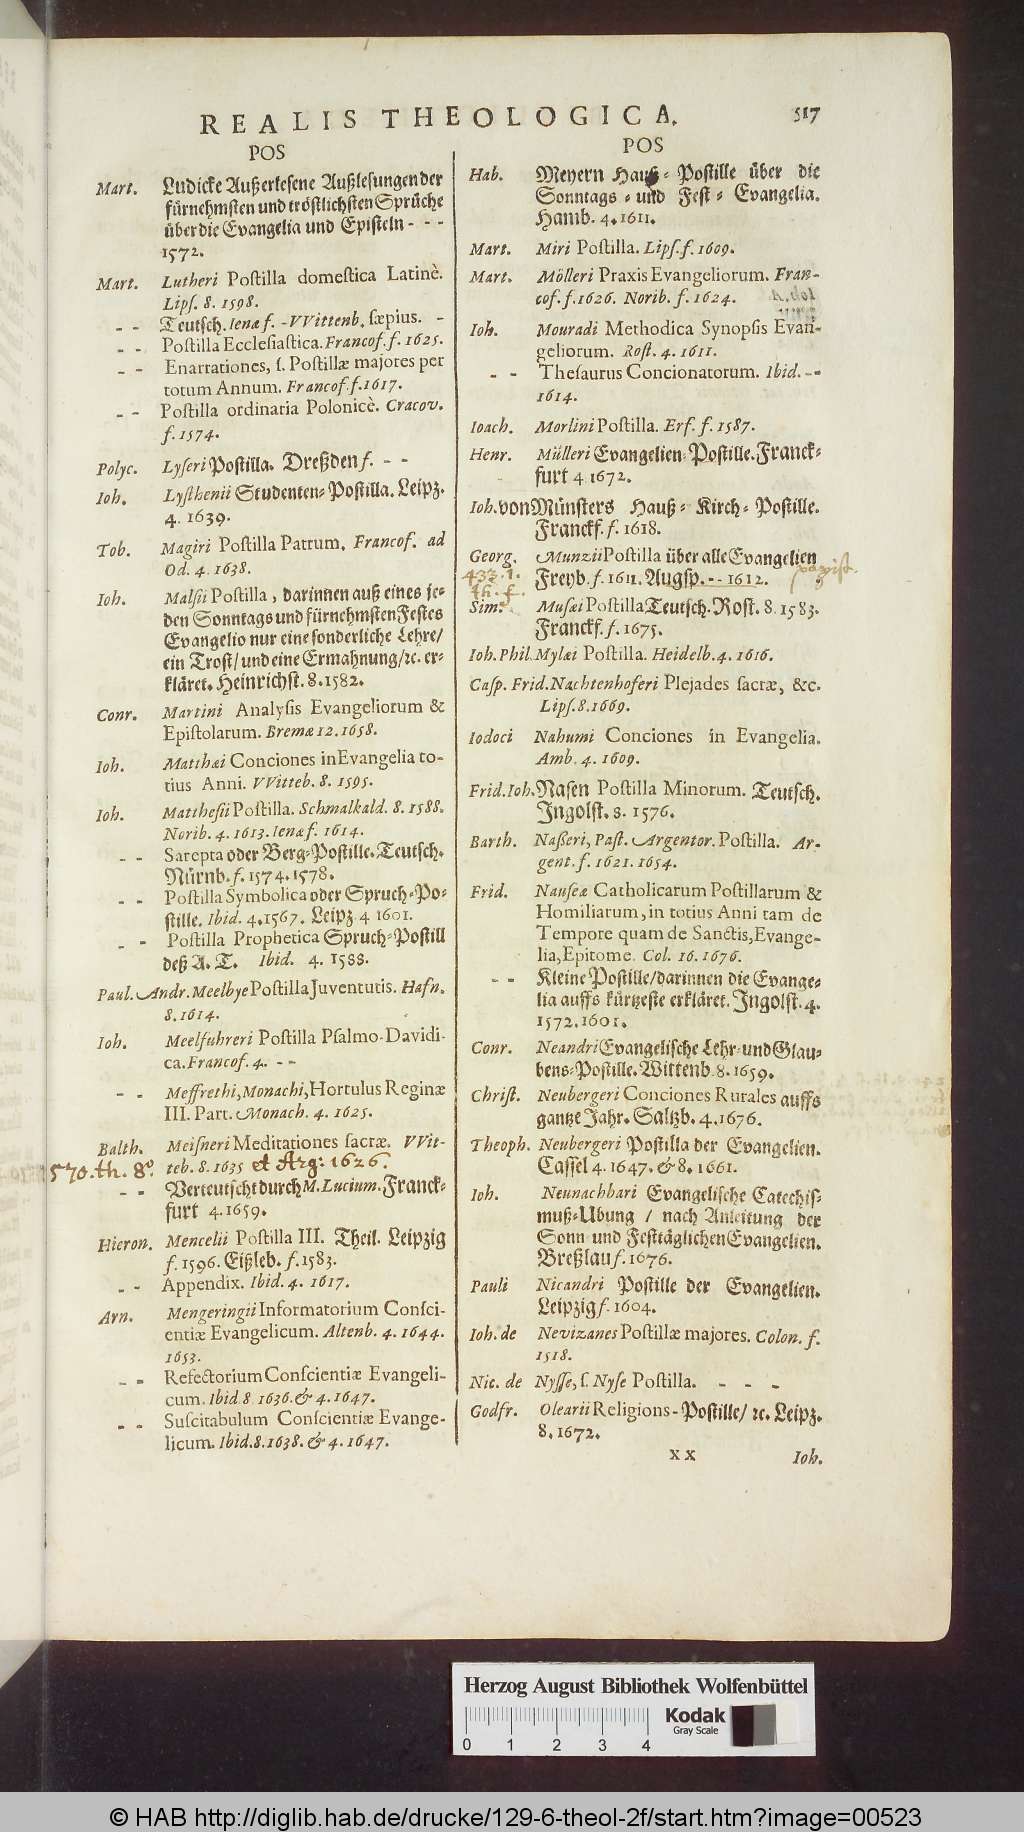 REALIS THEOLOGICA.
517
POS
Mart. Ludicke Außerlesene Außlesungen der
fürnehmsten und tröstlichsten Sprüche
über die Evangelia und Episteln - - -
1572.
Mart. Lutheri Postilla domestica Latinè.
Lips. 8. 1598.
- - Teutsch. Ienæ f. - VVittenb. sæpius. -
- - Postilla Ecclesiastica. Francof. f. 1625.
- - Enarrationes, s. Postillæ majores per
totum Annum. Francof. f. 1617.
- - Postilla ordinaria Polonicè. Cracov.
f. 1574.
Polyc. Lyseri Postilla. Dreßden f. - -
Ioh. Lysthenii Studenten-Postilla. Leipz.
4. 1639.
Tob. Magiri Postilla Patrum. Francof. ad
Od. 4. 1638.
Ioh. Malsii Postilla, darinnen auß eines je-
den Sonntags und fürnehmsten Festes
Evangelio nur eine sonderliche Lehre/
ein Trost/ und eine Ermahnung/ ꝛc. er-
kläret. Heinrichst. 8. 1582.
Conr. Martini Analysis Evangeliorum &
Epistolarum. Bremæ 12. 1658.
Ioh. Matthæi Conciones in Evangelia to-
tius Anni. VVitteb. 8. 1595.
Ioh. Matthesii Postilla. Schmalkald. 8. 1588.
Norib. 4. 1613. Ienæ f. 1614.
- - Sarepta oder Berg-Postille. Teutsch.
Nürnb. f. 1574. 1578.
- - Postilla Symbolica oder Spruch-Po-
stille. Ibid. 4. 1567. Leipz. 4 1601.
- - Postilla Prophetica Spruch-Postill
deß A. T. Ibid. 4. 1588.
Paul. Andr. Meelbye Postilla Juventutis. Hafn.
8. 1614.
Ioh. Meelfuhreri Postilla Psalmo-Davidi-
ca. Francof. 4. - -
- - Meffrethi, Monachi, Hortulus Reginæ
III. Part. Monach. 4. 1625.
Balth. Meisneri Meditationes sacræ. VVit-
570. th. 8o teb. 8. 1635 et Arg: 1626.
- - Verteutscht durch M. Lucium. Franck-
furt 4. 1659.
Hieron. Mencelii Postilla III. Theil. Leipzig
f. 1596. Eißleb. f. 1583.
- - Appendix. Ibid. 4. 1617.
Arn. Mengeringii Informatorium Consci-
entiæ Evangelicum. Altenb. 4. 1644.
1653.
- - Refectorium Conscientiæ Evangeli-
cum. Ibid. 8. 1636. & 4. 1647.
- - Suscitabulum Conscientiæ Evange-
licum. Ibid. 8. 1638. & 4. 1647.
POS
Hab. Meyern Hauß-Postille über die
Sonntags- und Fest-Evangelia.
Hamb. 4. 1611.
Mart. Miri Postilla. Lips. f. 1609.
Mart. Mölleri Praxis Evangeliorum. Fran-
cof. f. 1626. Norib. f. 1624.
Ioh. Mouradi Methodica Synopsis Evan-
geliorum. Rost. 4. 1611.
- - Thesaurus Concionatorum. Ibid. - -
1614.
Ioach. Morlini Postilla. Erf. f. 1587.
Henr. Mülleri Evangelien-Postille. Franck-
furt 4 1672.
Ioh. von Münsters Hauß-Kirch-Postille.
Franckf. f. 1618.
Georg. Munzii Postilla über alle Evangelien
432. 1. Freyb. f. 1611. Augsp. - - 1612. papist.
th. f.
Sim. Musæi Postilla Teutsch. Rost. 8. 1583.
Franckf. f. 1675.
Ioh. Phil. Mylæi Postilla. Heidelb. 4. 1616.
Casp. Frid. Nachtenhoferi Plejades sacræ, &c.
Lips. 8. 1669.
Iodoci Nahumi Conciones in Evangelia.
Amb. 4. 1609.
Frid. Ioh. Nasen Postilla Minorum. Teutsch.
Ingolst. 8. 1576.
Barth. Naßeri, Past. Argentor. Postilla. Ar-
gent. f. 1621. 1654.
Frid. Nauseæ Catholicarum Postillarum &
Homiliarum, in totius Anni tam de
Tempore quam de Sanctis, Evange-
lia, Epitome. Col. 16. 1676.
- - Kleine Postille/ darinnen die Evange-
lia auffs kürtzeste erkläret. Ingolst. 4.
1572. 1601.
Conr. Neandri Evangelische Lehr- und Glau-
bens-Postille. Wittenb. 8. 1659.
Christ. Neubergeri Conciones Rurales auffs
gantze Jahr. Saltzb. 4. 1676.
Theoph. Neubergeri Postilla der Evangelien.
Cassel 4. 1647. & 8. 1661.
Ioh. Neunachbari Evangelische Catechis-
muß-Ubung / nach Anleitung der
Sonn- und Festtäglichen Evangelien.
Breßlau f. 1676.
Pauli Nicandri Postille der Evangelien.
Leipzig f. 1604.
Ioh. de Nevizanes Postillæ majores. Colon. f.
1518.
Nic. de Nysse, s. Nyse Postilla. - - -
Godfr. Olearii Religions-Postille/ ꝛc. Leipz.
8. 1672.
X X Ioh.
Herzog August Bibliothek Wolfenbüttel
Kodak
Gray Scale
0 1 2 3 4
© HAB http://diglib.hab.de/drucke/129-6-theol-2f/start.htm?image=00523